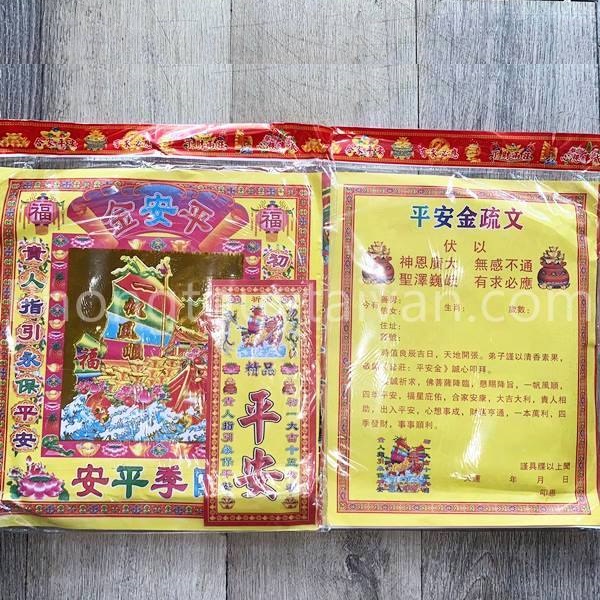 平安金
福
福
貴人指引永保平安
初
一帆風順
福
四季平安
祈
精品
平安
貴人指引永保平安
初一大吉十五
平安金疏文
伏以
神恩廣大 無感不通
聖澤巍峨 有求必應
今有善男:
信女: 生肖: 歲數:
住址:
寶號:
時值良辰吉日,天地開張。弟子謹以清香素果,
平安金》誠心叩拜。
誠祈求,佛菩薩降臨,懇賜降旨,一帆風順,
四季平安,福星庇佑,合家安康,大吉大利,貴人相
助,出入平安,心想事成,財運亨通,一本萬利,四
季發財,事事順利。
謹具牒以上聞
天運 年 月 日
叩恩